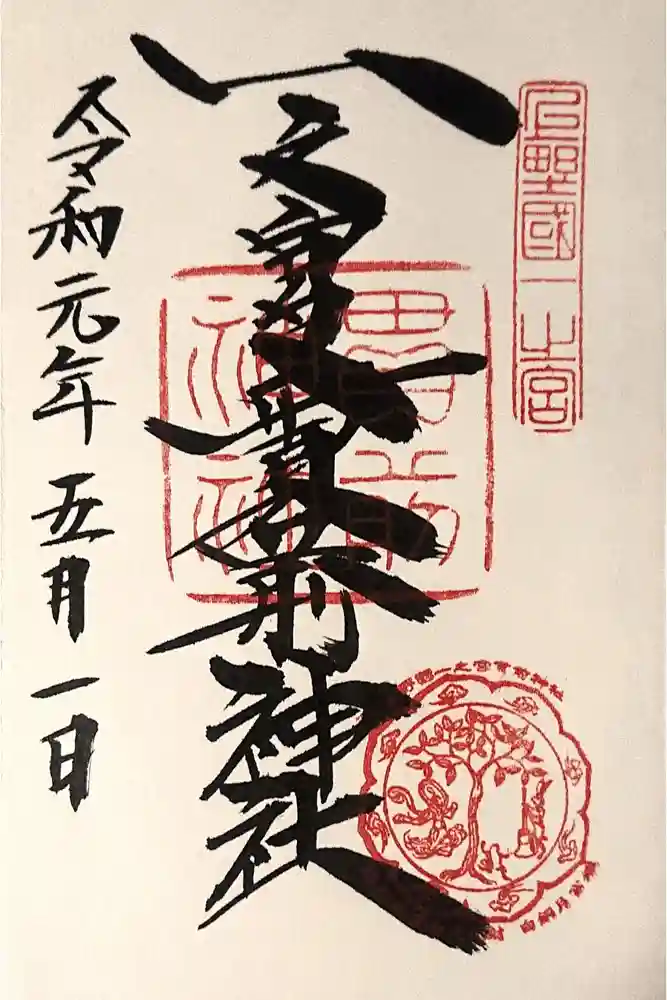 上野國一之宮
一之宮貫前神社
貫前神社
令和元年五月一日
野國一之宮貫前神社
白銅月宮